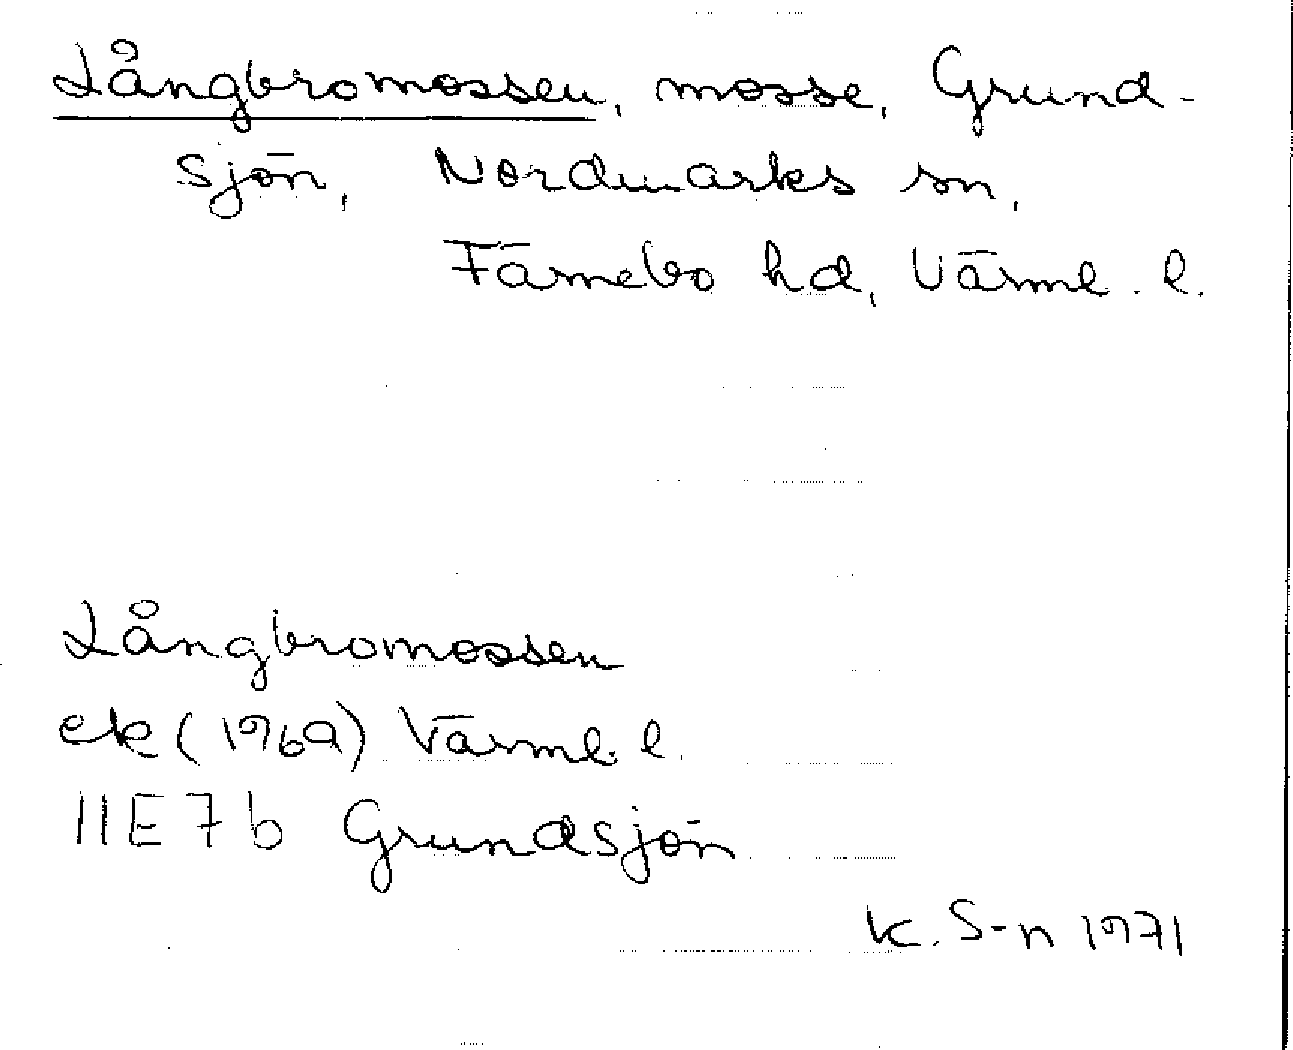 Långbromossen, mosse, Grund-
sjön, Nordmarks sn,
Färnebo hd, Värml. l.
Långbromossen
ek (1969) Värml. l.
11E7b Grundsjön
K. S-n 1971